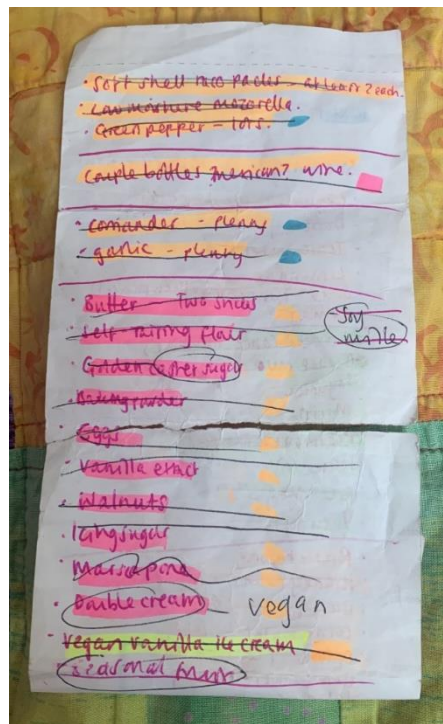 · Soft shell taco packs - at least 2 each.
· Low moisture mozarella.
· Green pepper - lots.
Couple bottles mexican? wine.
· coriander - plenty
· garlic - plenty
· Butter - Two
· self-raising flour
- Soy milk
· Golden caster sugar
· Baking powder
· Eggs
- vanilla extract
· Walnuts
· Icing sugar
· Mascapone
· Double cream vegan
- vegan vanilla ice cream
· Seasonal fruit